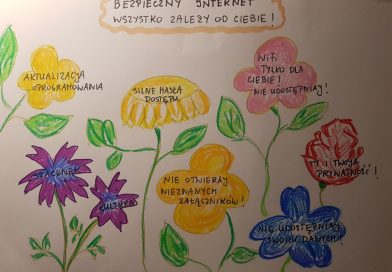 BEZPIECZNY INTERNET
WSZYSTKO ZALEŻY OD CIEBIE!
AKTUALIZACJA
OPROGRAMOWANIA
SILNE HASŁA
DOSTĘPU
WIFI
TYLKO DLA
CIEBIE!
NIE UDOSTĘPNIAJ!
SZACUNEK
KULTURA
NIE OTWIERAJ
NIEZNANYCH
ZAŁĄCZNIKÓW!
TY I TWOJA
PRYWATNOŚĆ!
NIE UDOSTĘPNIAJ
SWOICH DANYCH!